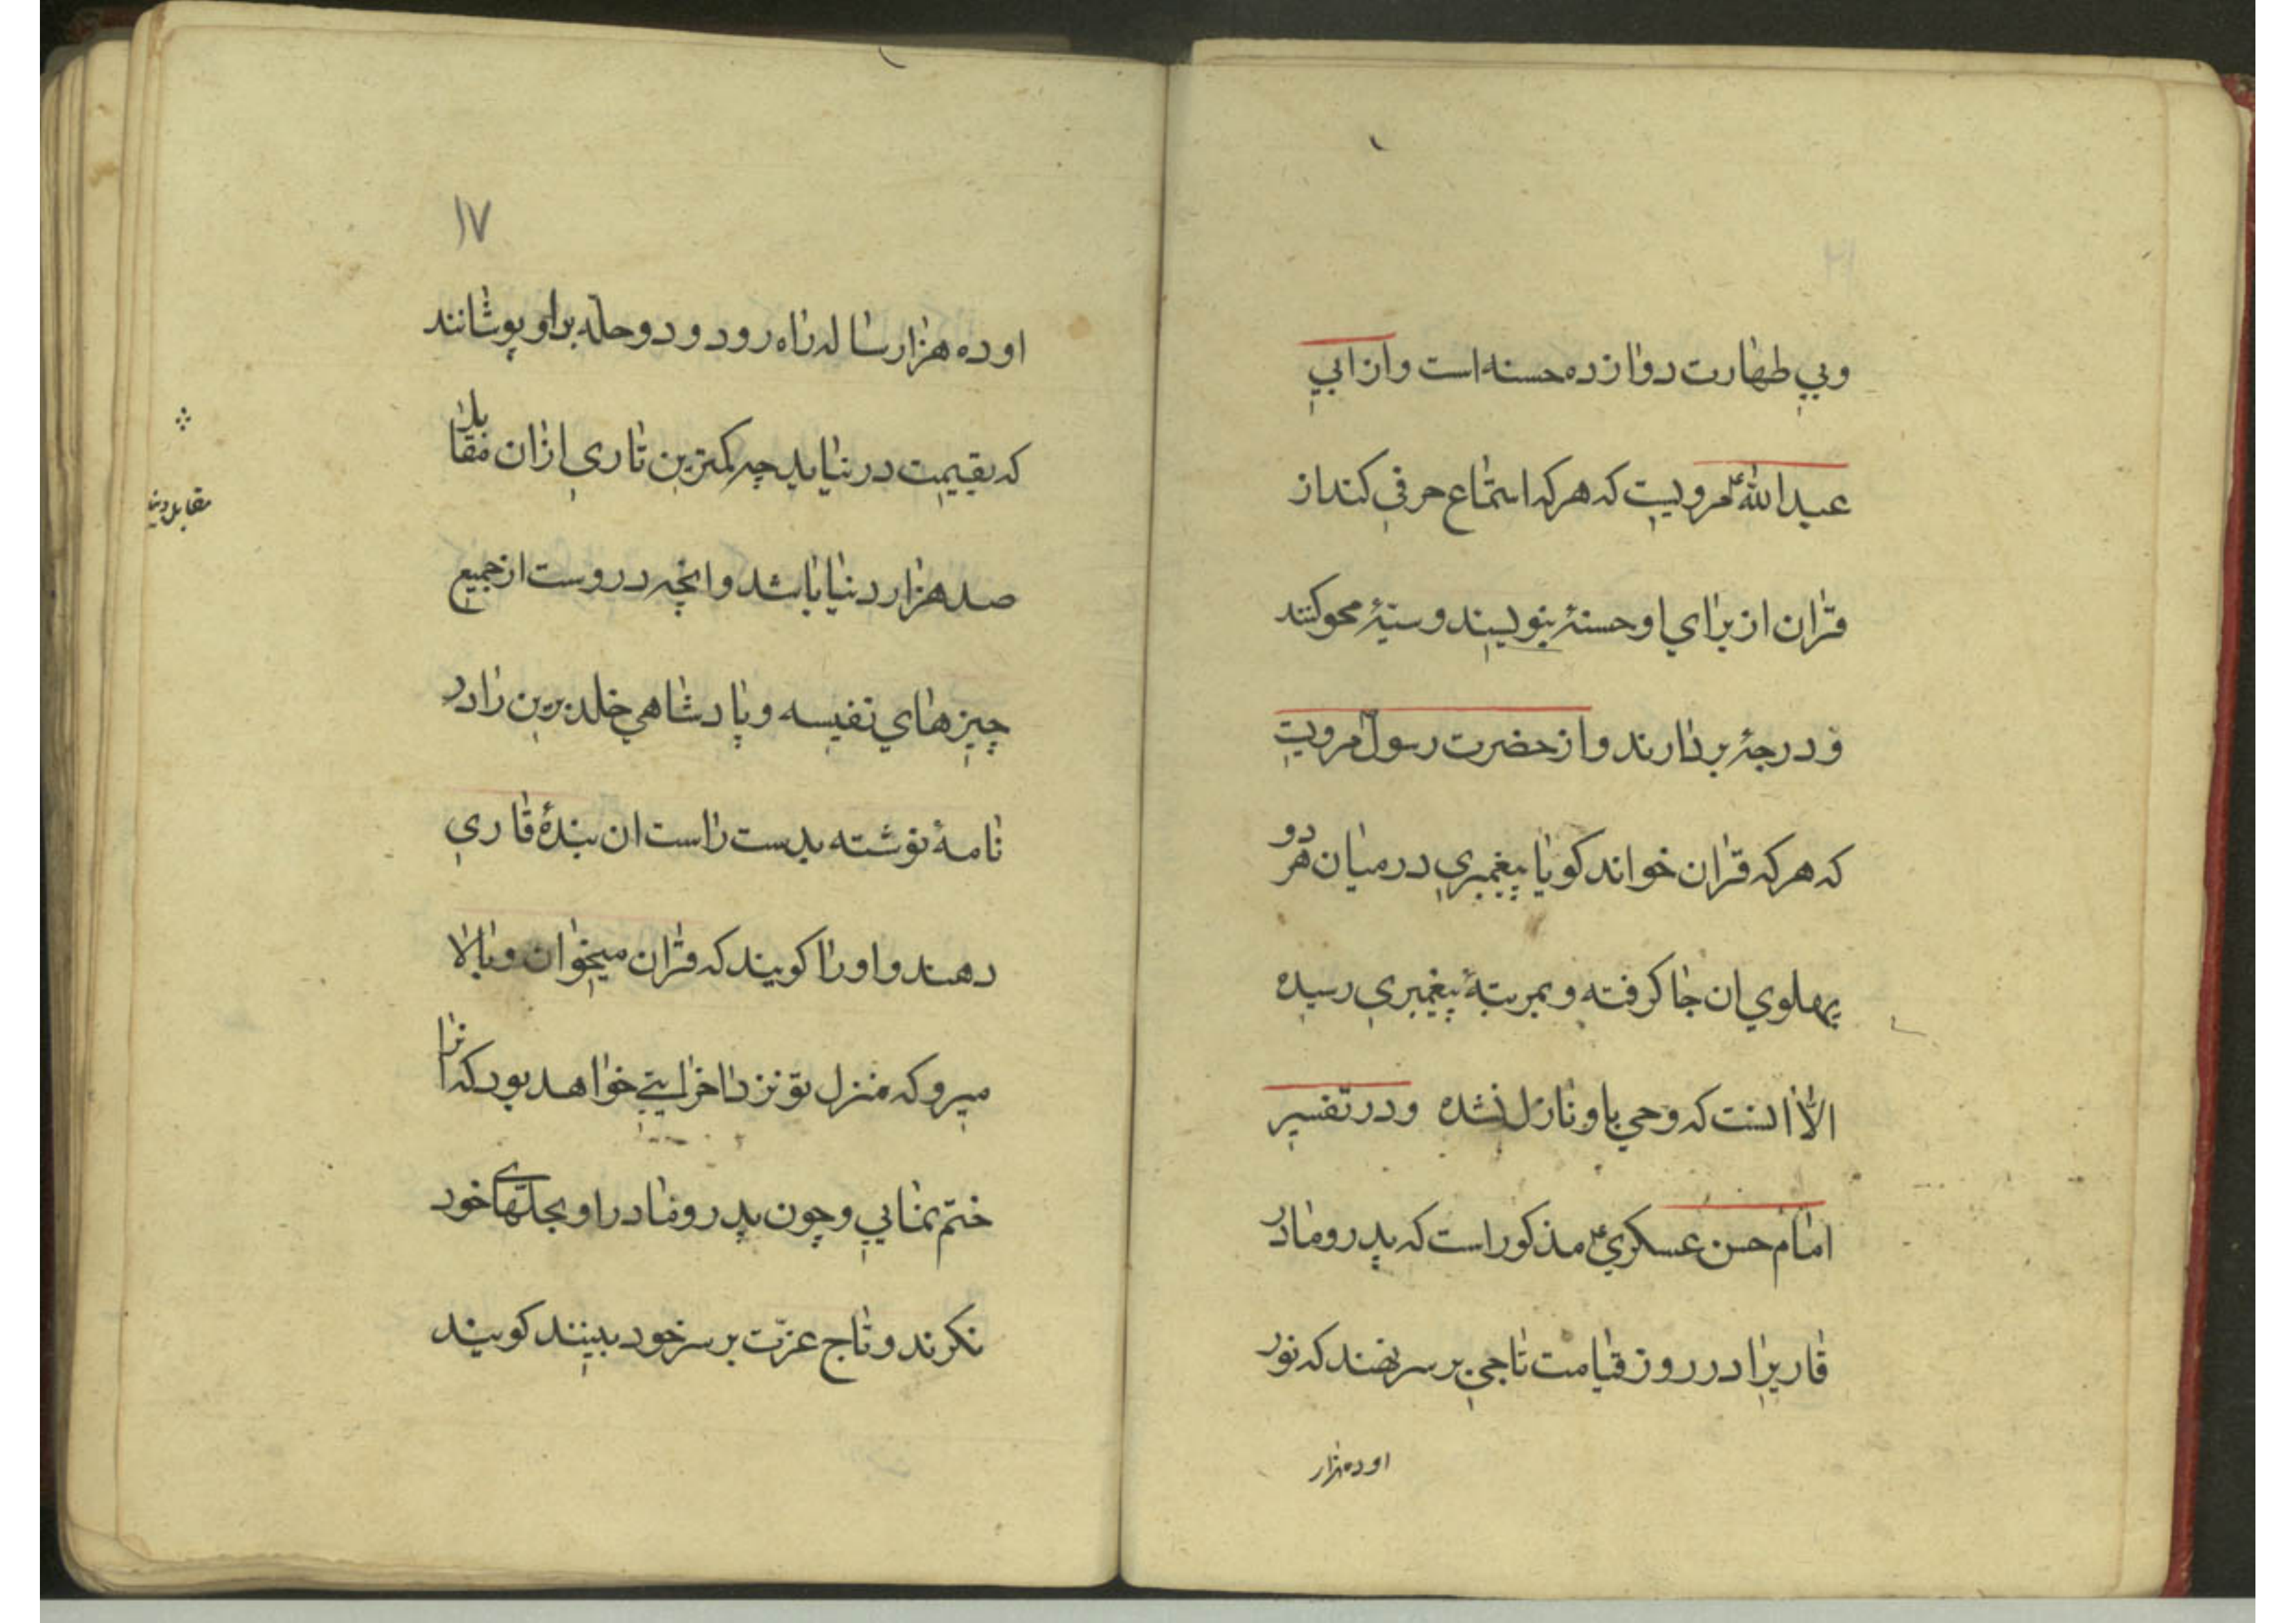 وبی طهارت دوازده حسنه است و از ابی
عبدالله ع مرویست که هر که استماع حرفی کند از
قران از برای او حسنهٔ بنویسند و سیّئهٔ محو کنند
و درجهٔ بردارند و از حضرت رسول مرویست
که هر که قران خواند کویا پیغمبری در میان هر دو
پهلوی ان جا کرفته و بمرتبهٔ پیغمبری رسیده
الّا انست که وحی باو نازل نشده و در تفسیر
امام حسن عسکری ع مذکور است که پدر و مادر
قاریرا در روز قیامت تاجی بر سر نهند که نور
او ده هزار
۱۷
او ده هزار ساله راه رود و دو حله بر او پوشانند
که بقیمت در نیاید چه کمترین تاری از ان مقابل
مقابل دنیا
صد هزار دنیا باشد و انچه در روست از جمیع
چیزهای نفیسه و پادشاهی خلد برین را در
نامهٔ نوشته بدست راست ان بندهٔ قاری
دهند و او را کویند که قران میخوان و بالا
میرو که منزل تو نزد اخر ایتی خواهد بود که انرا
ختم نمایی و چون پدر و مادر او بحلّهای خود
نکرند و تاج عزّت بر سر خود ببینند کویند